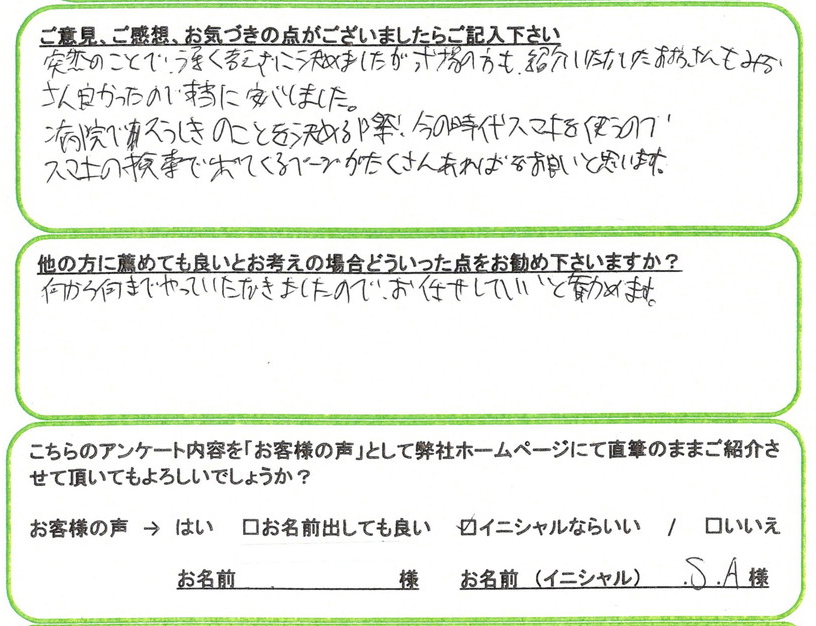 ご意見、ご感想、お気づきの点がございましたらご記入下さい
突然のことで、決めましたが式場の方も、紹介いただいたおぼうさんもみな
さん良かったので本当に安心しました。
病院でおそうしきのことを決める際、今の時代スマホを使うので
スマホの検索で出てくるページがたくさんあれば良いと思います。
他の方に薦めても良いとお考えの場合どういった点をお勧め下さいますか？
何から何までやっていただきましたので、お任せしていいと勧めます。
こちらのアンケート内容を「お客様の声」として弊社ホームページにて直筆のままご紹介さ
せて頂いてもよろしいでしょうか？
お客様の声 → はい □お名前出しても良い ☑イニシャルならいい / □いいえ
お名前 様 お名前（イニシャル） S.A 様